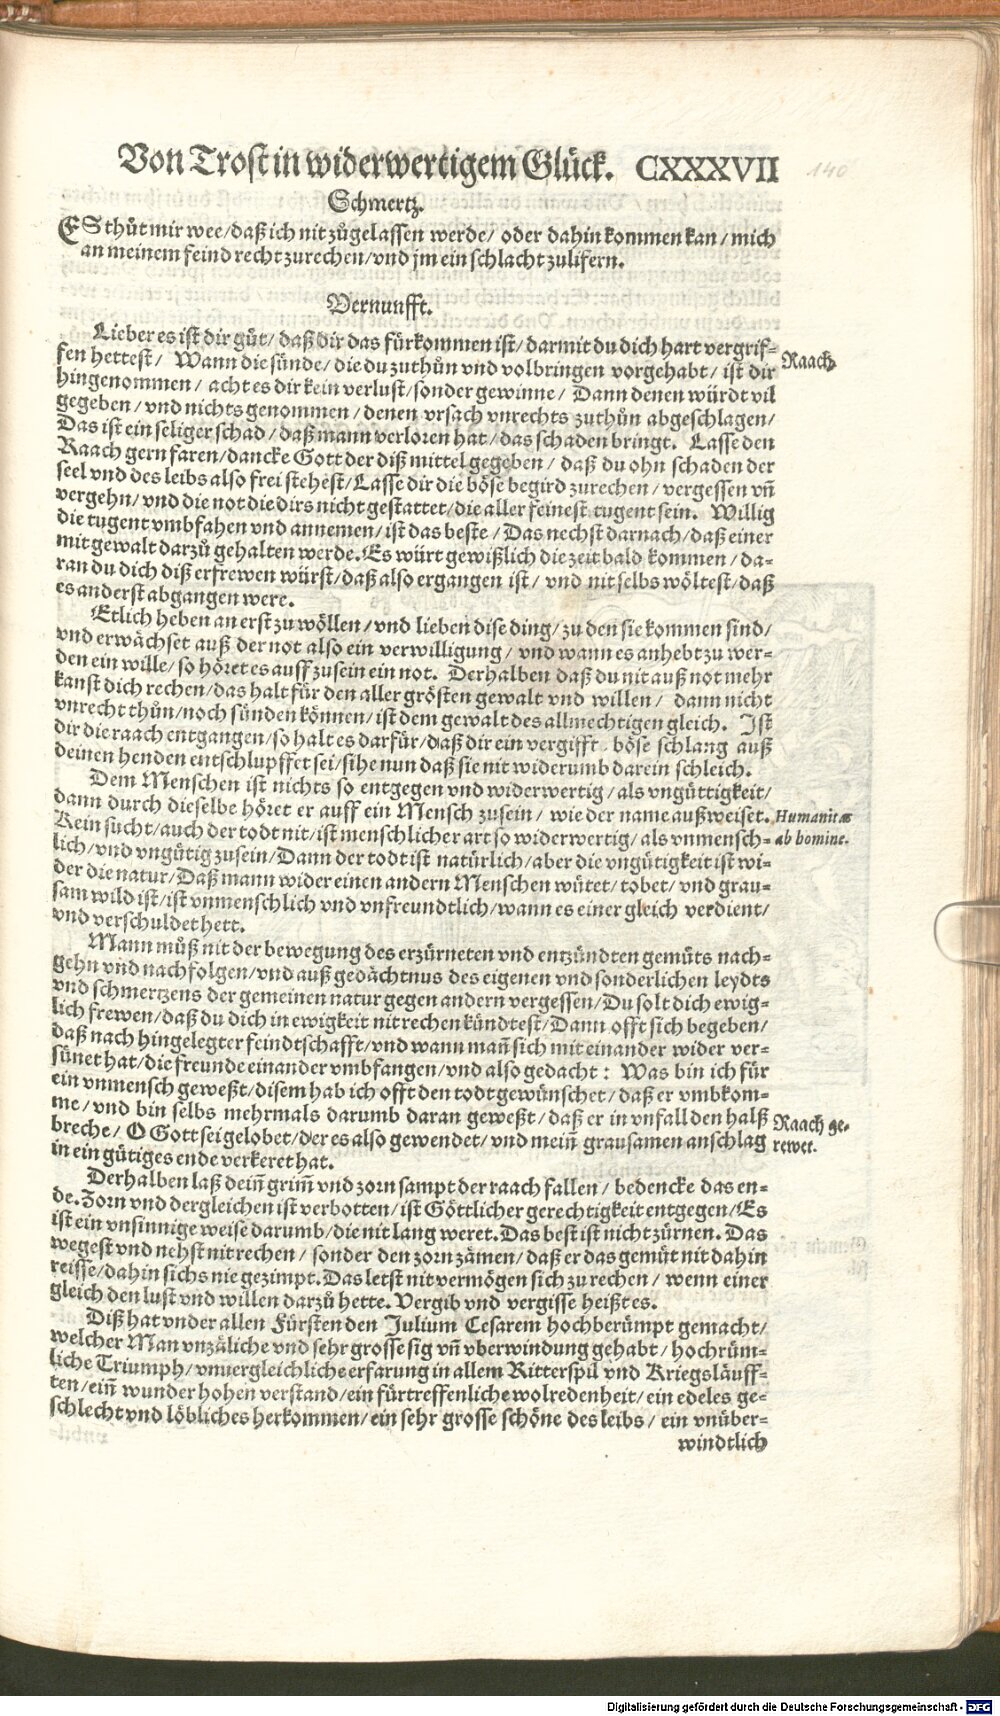 Von Trost in widerwertigem Glück. CXXXVII
140
Schmertz.
ES thůt mir wee/daß ich nit zůgelassen werde/ oder dahin kommen kan/ mich
an meinem feind recht zurechen/vnd jm ein schlacht zulifern.
Vernunfft.
Lieber es ist dir gůt/ daß dir das fürkommen ist/darmit du dich hart vergrif-
fen hettest/ Wann die sünde/die du zuthůn vnd volbringen vorgehabt/ ist dir
Raach.
hingenommen/ acht es dir kein verlust/sonder gewinne/ Dann denen würdt vil
gegeben/vnd nichts genommen/denen vrsach vnrechts zuthůn abgeschlagen/
Das ist ein seliger schad/daß mann verloren hat/das schaden bringt. Lasse den
Raach gern faren/dancke Gott der diß mittel gegeben/ daß du ohn schaden der
seel vnd des leibs also frei stehest/Lasse dir die böse begird zurechen/vergessen vn̄
vergehn/vnd die not die dirs nicht gestattet/die aller feinest tugent sein. Willig
die tugent vmbfahen vnd annemen/ist das beste/Das nechst darnach/daß einer
mit gewalt darzů gehalten werde.Es würt gewißlich die zeit bald kommen/da-
ran du dich diß erfrewen würst/daß also ergangen ist/ vnd nit selbs wöltest/daß
es anderst abgangen were.
Etlich heben an erst zu wöllen/vnd lieben dise ding/zu den sie kommen sind/
vnd erwächset auß der not also ein verwilligung/ vnd wann es anhebt zu wer-
den ein wille/so höret es auff zusein ein not. Derhalben daß du nit auß not mehr
kanst dich rechen/das halt für den aller grösten gewalt vnd willen/ dann nicht
vnrecht thůn/noch sünden können/ist dem gewalt des allmechtigen gleich. Ist
dir die raach entgangen/so halt es darfür/daß dir ein vergifft böse schlang auß
deinen henden entschlupffet sei/sihe nun daß sie nit widerumb darein schleich.
Dem Menschen ist nichts so entgegen vnd widerwertig/als vngüttigkeit/
dann durch dieselbe höret er auff ein Mensch zusein/ wie der name außweiset.
Humanitas
Kein sucht/auch der todt nit/ist menschlicher art so widerwertig/als vnmensch-
ab homine.
lich/vnd vngütig zusein/Dann der todt ist natürlich/aber die vngütigkeit ist wi-
der die natur/Daß mann wider einen andern Menschen wütet/tobet/vnd grau-
sam wild ist/ist vnmenschlich vnd vnfreundtlich/wann es einer gleich verdient/
vnd verschuldet hett.
Mann můß nit der bewegung des erzürneten vnd entzündten gemüts nach-
gehn vnd nachfolgen/vnd auß gedächtnus des eigenen vnd sonderlichen leydts
vnd schmertzens der gemeinen natur gegen andern vergessen/Du solt dich ewig-
lich frewen/daß du dich in ewigkeit nit rechen kündtest/Dann offt sich begeben/
daß nach hingelegter feindtschafft/vnd wann man̄ sich mit einander wider ver-
sünet hat/die freunde einander vmbfangen/vnd also gedacht: Was bin ich für
ein vnmensch geweßt/disem hab ich offt den todt gewünschet/daß er vmbkom-
me/vnd bin selbs mehrmals darumb daran geweßt/daß er in vnfall den halß
Raach ge-
breche/ O Gott sei gelobet/der es also gewendet/vnd mein̄ grausamen anschlag
rewet.
in ein gütiges ende verkeret hat.
Derhalben laß dein̄ grim̄ vnd zorn sampt der raach fallen/ bedencke das en-
de. Zorn vnd dergleichen ist verbotten/ist Göttlicher gerechtigkeit entgegen/Es
ist ein vnsinnige weise darumb/die nit lang weret.Das best ist nicht zürnen. Das
wegest vnd nehst nit rechen/ sonder den zorn zämen/daß er das gemüt nit dahin
reisse/dahin sichs nie gezimpt.Das letst nit vermögen sich zu rechen/ wenn einer
gleich den lust vnd willen darzů hette.Vergib vnd vergisse heißt es.
Diß hat vnder allen Fürsten den Julium Cesarem hochberümpt gemacht/
welcher Man vnzäliche vnd sehr grosse sig vn̄ vberwindung gehabt/hochrüm-
liche Triumph/vnuergleichliche erfarung in allem Ritterspil vnd Kriegsläuff-
ten/ein̄ wunder hohen verstand/ein fürtreffenliche wolredenheit/ein edeles ge-
schlecht vnd löbliches herkommen/ein sehr grosse schöne des leibs/ ein vnüber-
windtlich
Digitalisierung gefördert durch die Deutsche Forschungsgemeinschaft - DFG